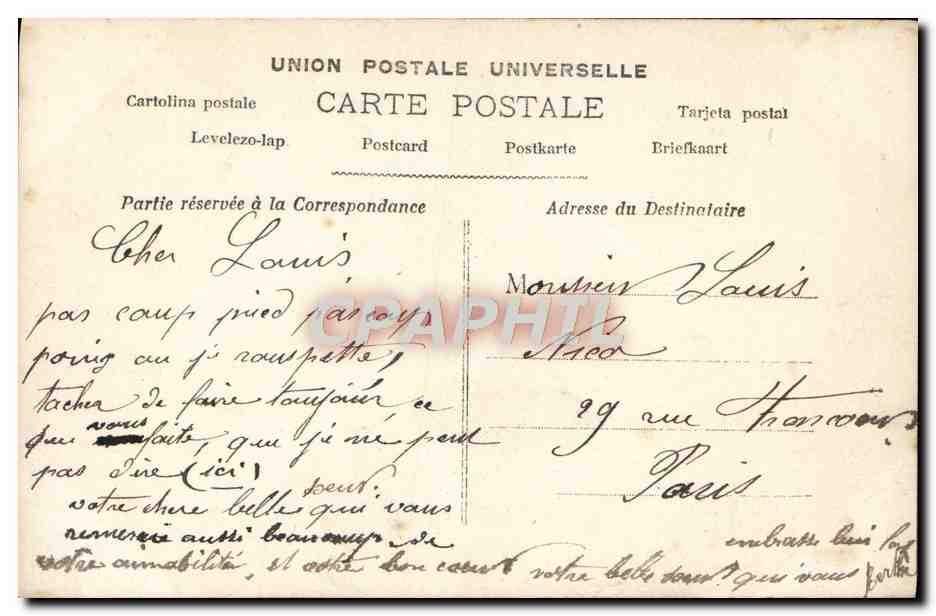 UNION POSTALE UNIVERSELLE
Cartolina postale CARTE POSTALE Tarjeta postal
Levelezo-lap Postcard Postkarte Briefkaart
Partie réservée à la Correspondance
Cher Louis
pas coup pied pas coup
poing ou je rouspette,
tacher de faire toujour ce
que vous faite, que je ne peut
pas dire (ici)
votre chere belle seur. qui vous
remercie aussi beaucoup de
votre aimabilité, et votre bon coeur votre belle seur qui vous
embrasse bien fort
Adresse du Destinataire
Monsieur Louis
Nico
29 rue
Paris
CPAPHIL